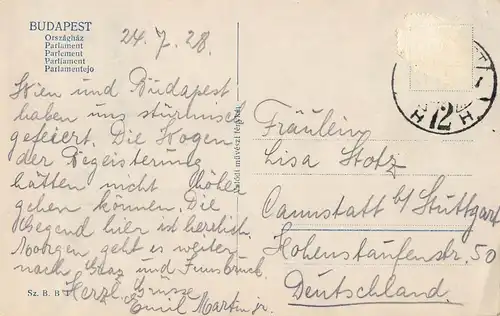 BUDAPEST
Országház
Parlament
Parlement
Parliament
Parlamentejo
24. 7. 28.
Wien und Budapest
haben uns stürmisch
gefeiert. Die Wogen
der Begeisterung
hätten nicht höher
gehen können. Die
Gegend hier ist herrlich.
Morgen geht es weiter
nach Graz und Innsbruck.
Herzl. Grüsse
Emil Martin jr.
Sz. B. B
Valódi művészi fénykép
Fräulein
Lisa Stotz
Cannstatt b/Stuttgart
Hohenstaufenstr. 50
Deutschland.
H 72 H